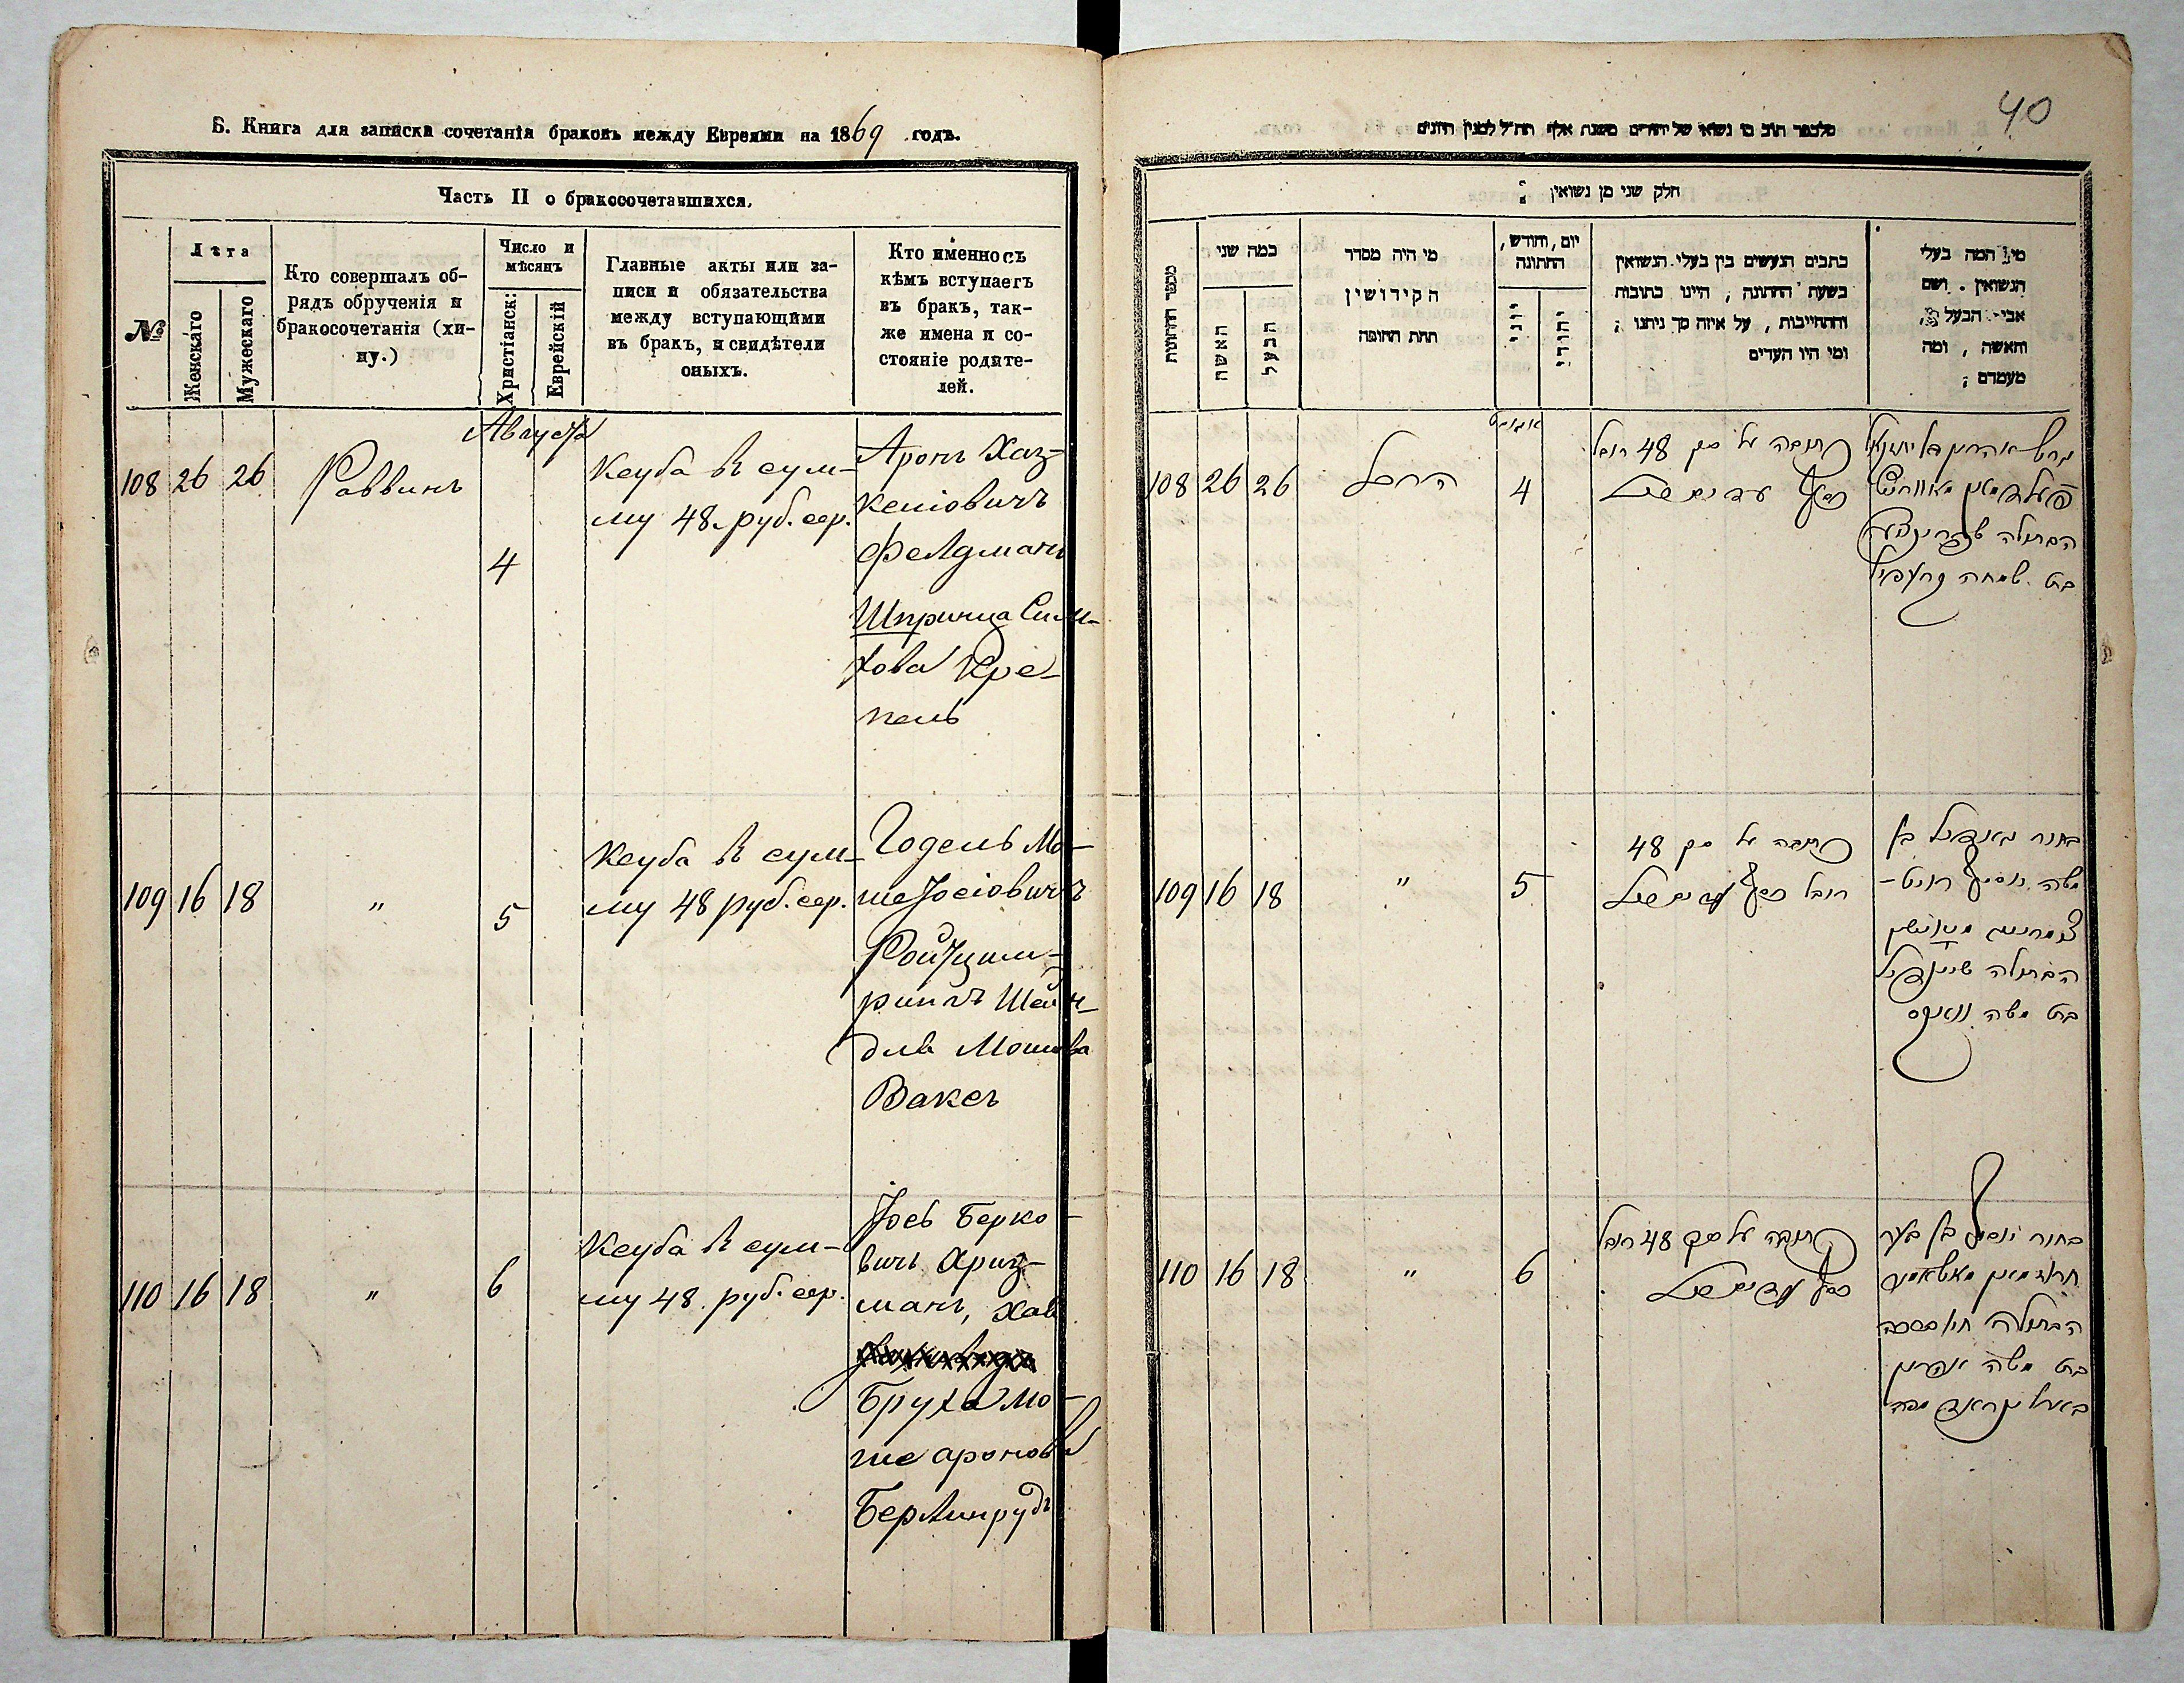 Б. Книга для записки сочетанія браковъ между Евреями на 1869 годъ.
Часть II о бракосочетавшихся.
№
Лѣта
Женскаго
Мужескаго
Кто совершалъ об-
рядъ обрученія и
бракосочетанія (хи-
пу.)
Число и
мѣсяцъ
Христіанск:
Еврейскій
Главные акты или за-
писи и обязательства
между вступающими
въ бракъ, и свидѣтели
оныхъ.
Кто именно съ
кѣмъ вступаетъ
въ бракъ, так-
же имена и со-
стояніе родите-
лей.
Августа
108 26 26 Раввинъ 4
Ксуба въ сум-
му 48 руб. сер.
Аронъ Хаз-
келіовичъ
Фелдманъ
Шпринца Сим-
хова Кре-
пель
109 16 18 " 5
Ксуба въ сум-
му 48 руб. сер.
Годель Мо-
ше Іосіовичъ
Ройтцим-
рингъ Шейн-
для Мошкова
Ваксъ
110 16 18 " 6
Ксуба въ сум-
му 48 руб. сер.
Іось Берко-
вичъ Хриз-
манъ, Хая
Бруха Мо-
ше Аронова
Берлинрудъ
40
חלק שני מן נשואין
מספר החתונות
כמה שני
האשה
הבעל
מי היה מסדר
הקידושין
תחת החופה
יום, וחודש,
החתונה
יוני
יהודי
כתבים הנעשים בין בעלי הנשואין
בשעת החתונה, היינו כתובות
והתחייבות, על איזה סך ניתנו;
ומי היו העדים
מי המה בעלי
הנשואין. ושם
אבי הבעל,
והאשה, ומה
מעמדם;
אוגוסט
108 26 26 הרב 4
כתובה על סך 48 רובל
כסף
הבתולה שפרינצע
בת שמחה קרעפיל
109 16 18 " 5
כתובה על סך 48
רובל כסף
בחור גאדיל בן
משה יוסף רויט-
הבתולה שיינדיל
בת משה וואקס
110 16 18 " 6
כתובה על סך 48 רובל
כסף
בחור יוסף בן בער
הבתולה חי' ברכה
בת משה אהרן